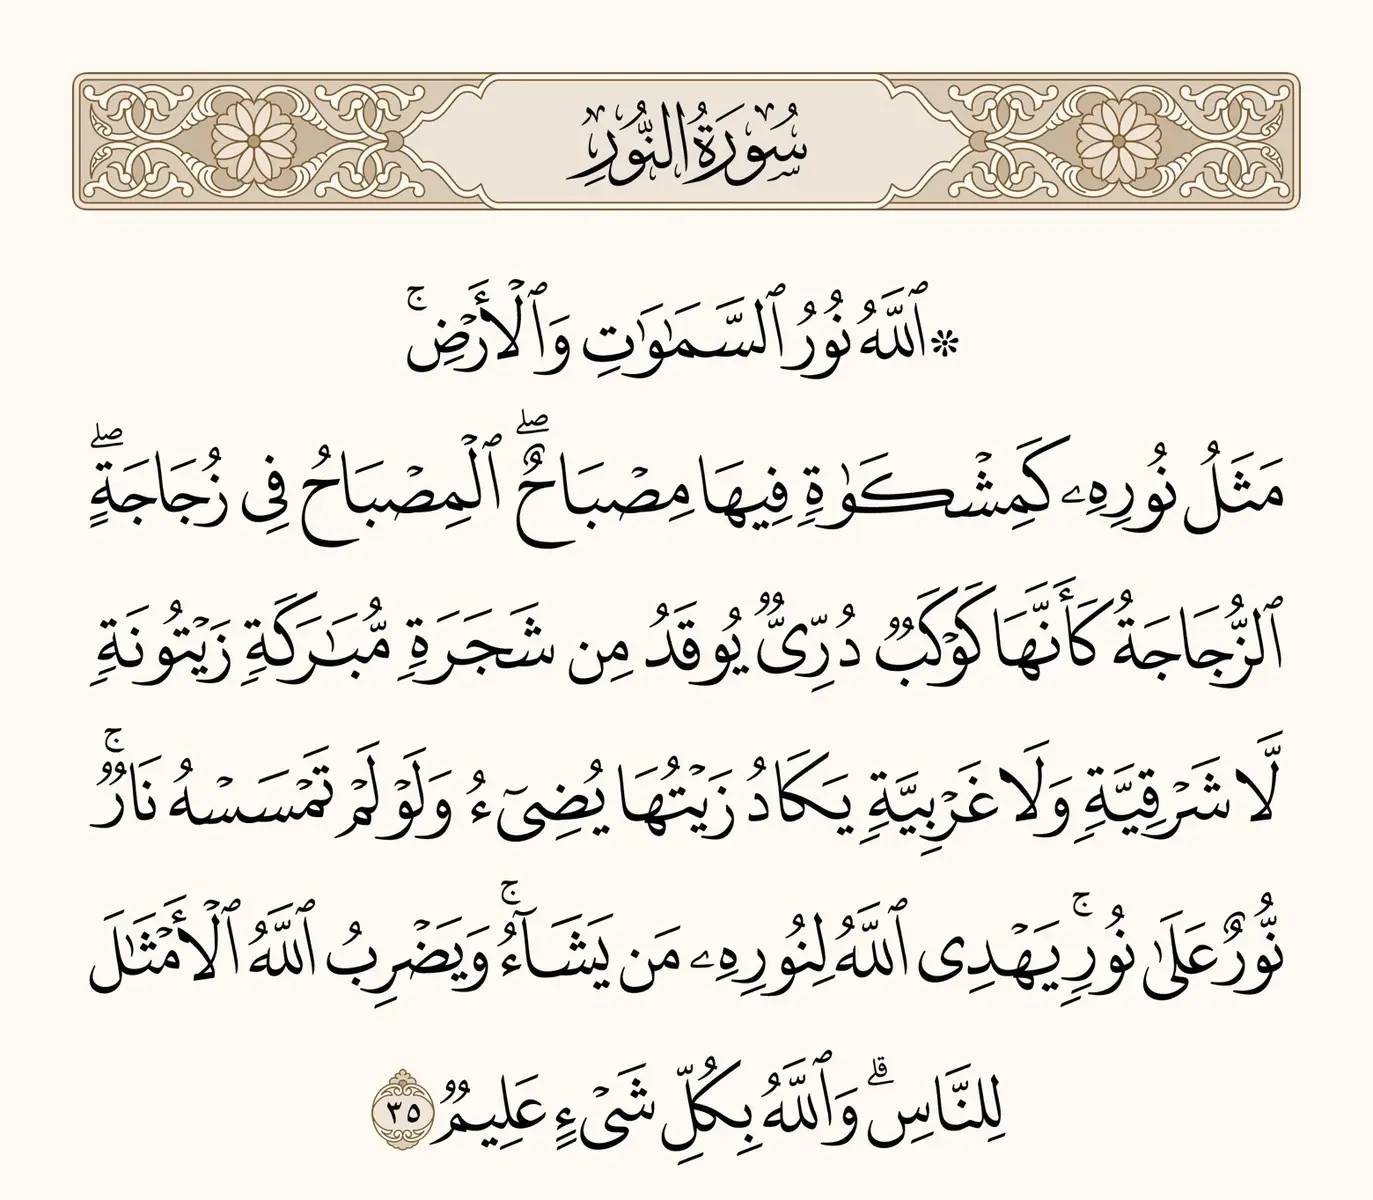 سُورَةُ النُّورِ
۞ٱللَّهُ نُورُ ٱلسَّمَٰوَٰتِ وَٱلۡأَرۡضِۚ
مَثَلُ نُورِهِۦ كَمِشۡكَوٰةٖ فِيهَا مِصۡبَاحٌۖ ٱلۡمِصۡبَاحُ فِي زُجَاجَةٍۖ
ٱلزُّجَاجَةُ كَأَنَّهَا كَوۡكَبٞ دُرِّيّٞ يُوقَدُ مِن شَجَرَةٖ مُّبَٰرَكَةٖ زَيۡتُونَةٖ
لَّا شَرۡقِيَّةٖ وَلَا غَرۡبِيَّةٖ يَكَادُ زَيۡتُهَا يُضِيٓءُ وَلَوۡ لَمۡ تَمۡسَسۡهُ نَارٞۚ
نُّورٌ عَلَىٰ نُورٖۚ يَهۡدِي ٱللَّهُ لِنُورِهِۦ مَن يَشَآءُۚ وَيَضۡرِبُ ٱللَّهُ ٱلۡأَمۡثَٰلَ
لِلنَّاسِۗ وَٱللَّهُ بِكُلِّ شَيۡءٍ عَلِيمٞ ٣٥